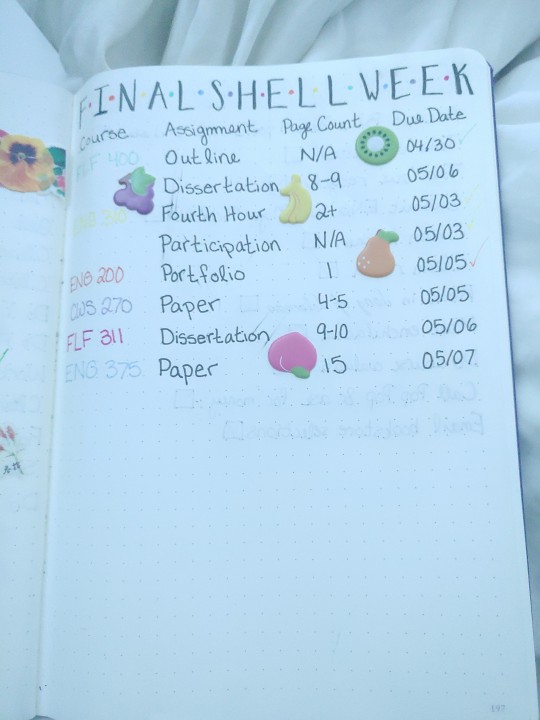 F·I·N·A·L·S·H·E·L·L·W·E·E·K
Course Assignment Page Count Due Date
FLF 400 Outline N/A 04/30
Dissertation 8-9 05/06
ENG 310 Fourth Hour 2+ 05/03
Participation N/A 05/03
ENG 200 Portfolio 1 05/05
CWS 270 Paper 4-5 05/05
FLF 311 Dissertation 9-10 05/06
ENG 375 Paper 15 05/07
197